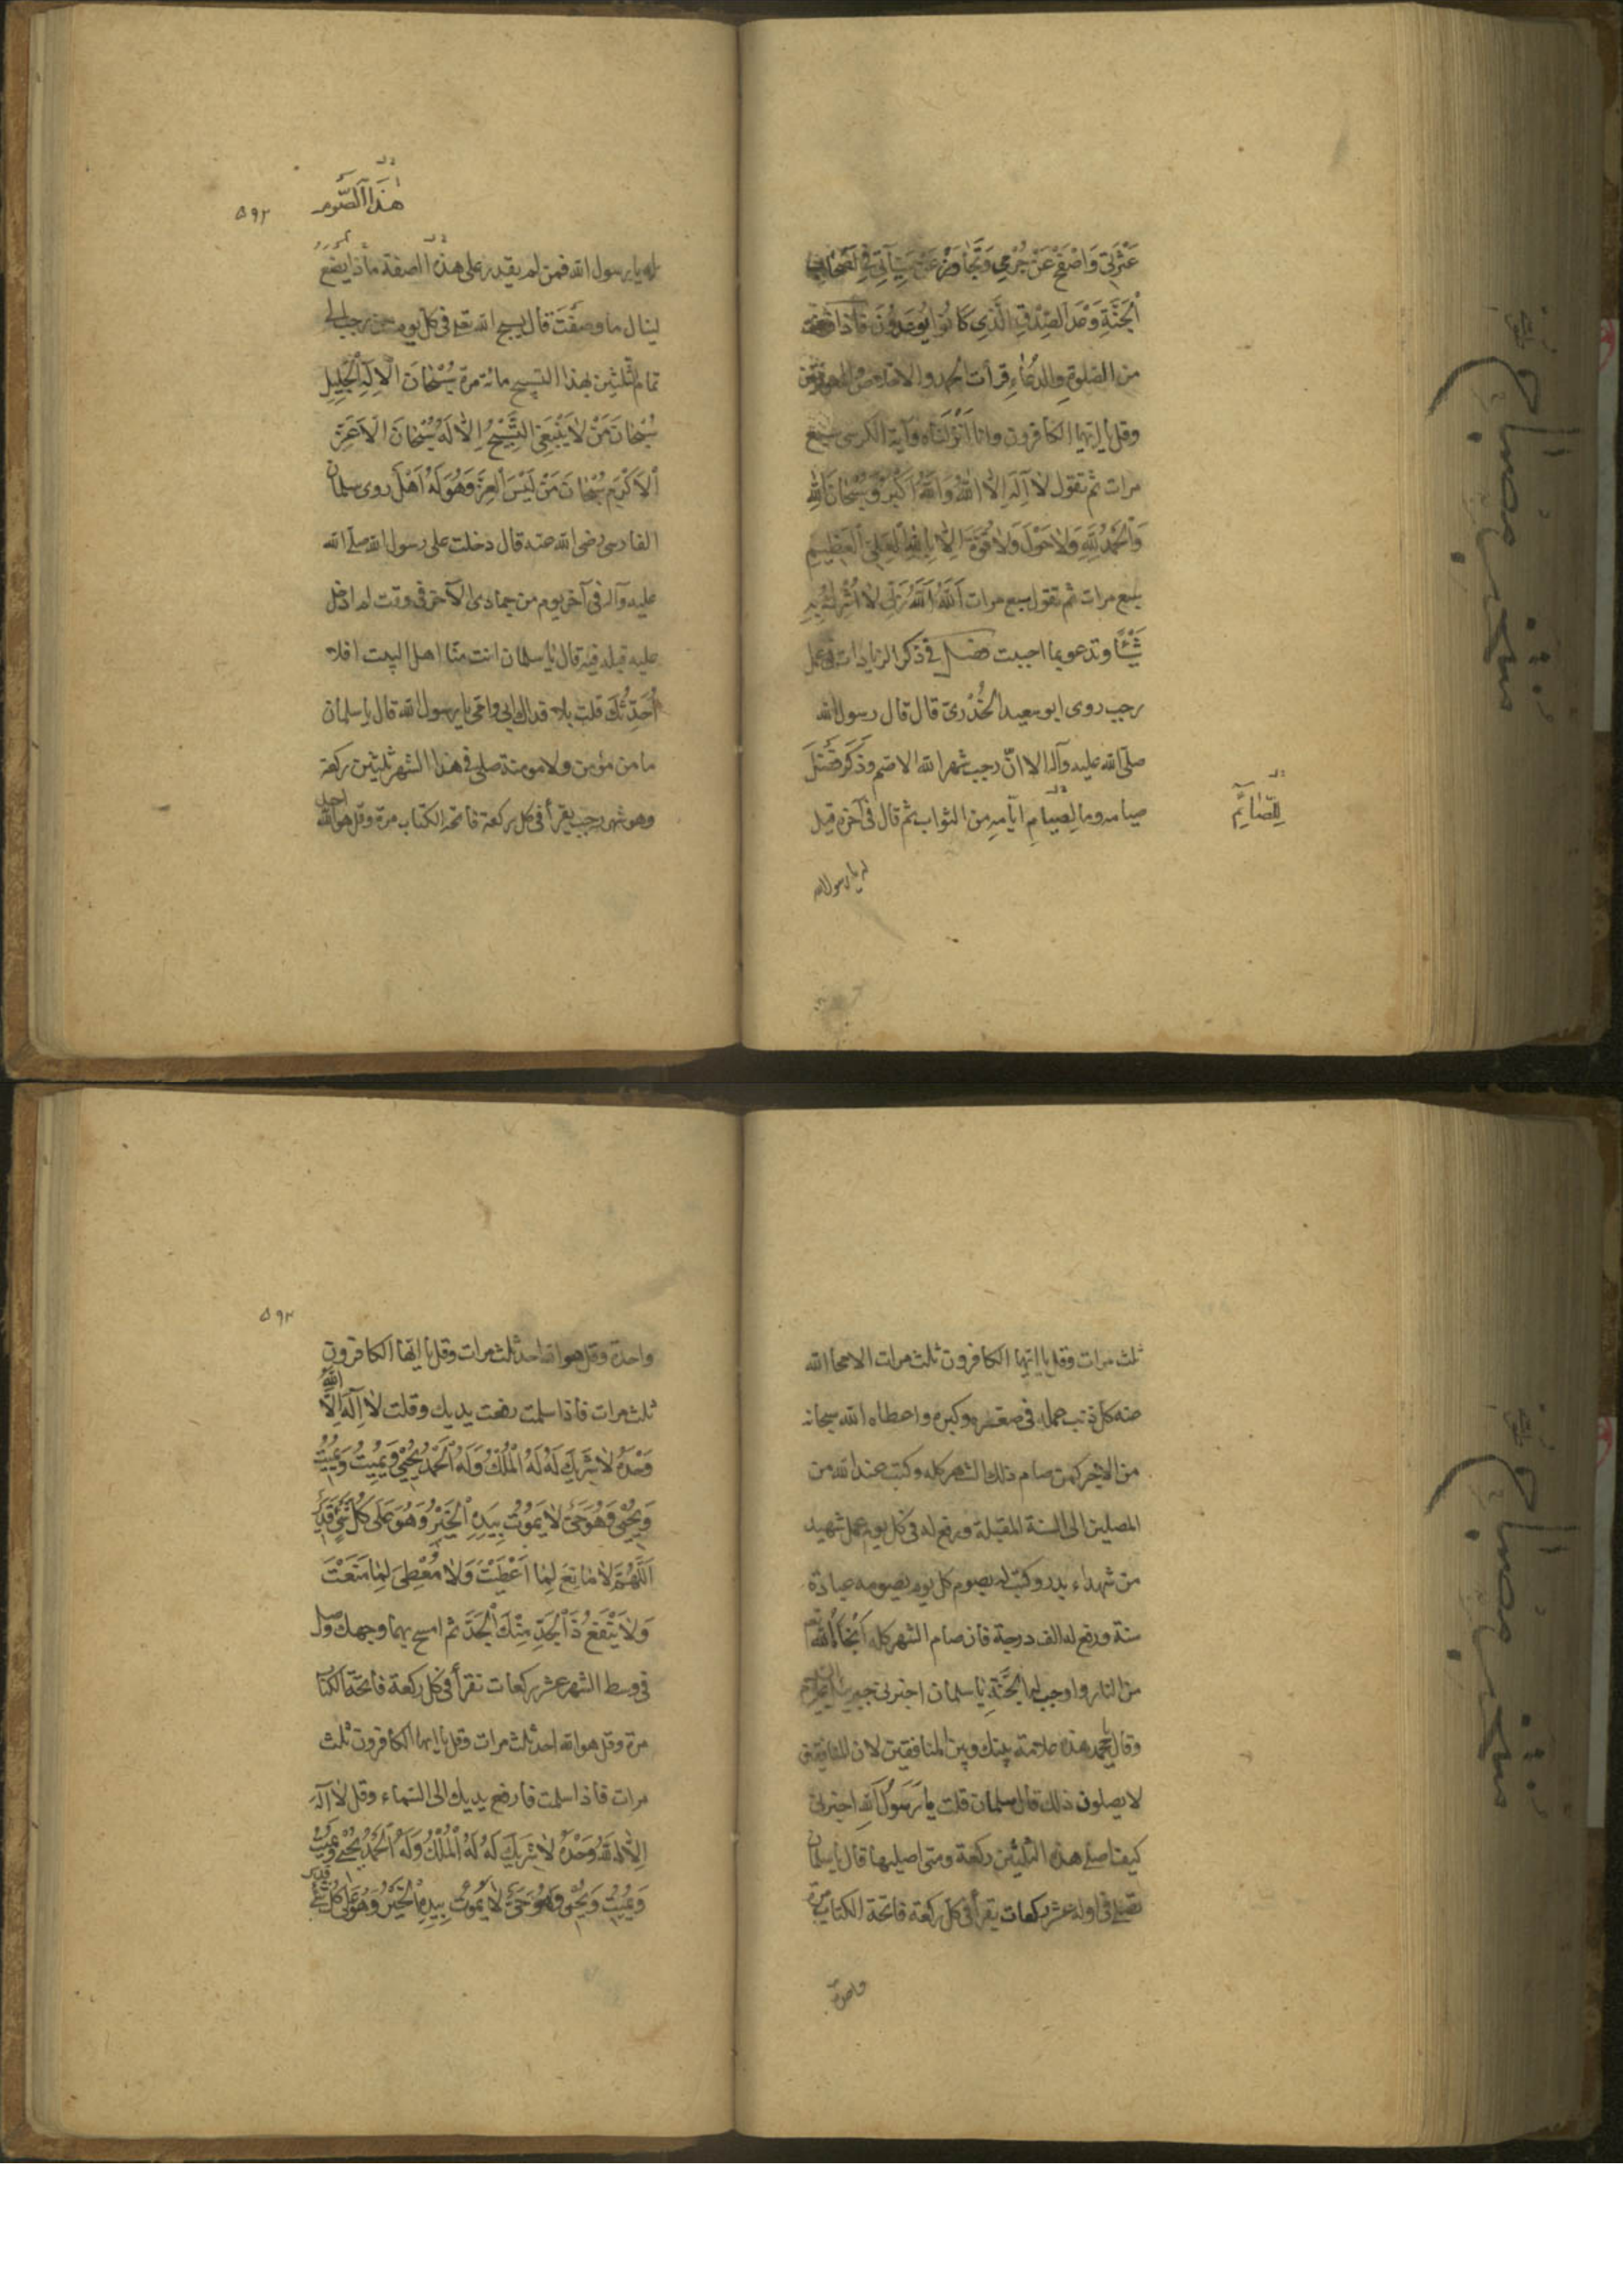 عَثْرَتِي وَاصْفَحْ عَنْ جُرْمِي وَتَجَاوَزْ عَنْ سَيِّئَاتِي فِي أَصْحَابِ
الْجَنَّةِ وَعْدَ الصِّدْقِ الَّذِي كَانُوا يُوعَدُونَ فاذا فرغت
من الصَّلوةِ والدُّعَاءِ قرأت الحمد والاخلاص والمعوّذتين
وقل يا ايّها الكافرون وانا اَنْزَلْنَاه وآية الكرسى سبع
مرات ثم تقول لَا اِلٰهَ اِلَّا اللهُ وَاللهُ اَكْبَرُ وَسُبْحَانَ اللهِ
وَالْحَمْدُ لِلهِ وَلَا حَوْلَ وَلَا قُوَّةَ اِلَّا بِاللهِ الْعَلِيِّ الْعَظِيمِ
سبع مرات ثم تقول سبع مرات اَللهُ اَللهُ رَبِّي لَا اُشْرِكُ بِهِ
شَيْئًا وتدعو بما احببت فصل في ذكر الزيادات في عمل
رجب روى ابو سعيد الخُدْرىّ قال قال رسول الله
صلّى الله عليه وآله الا انّ رجب شهر الله الاصم وذَكَرَ فَضْلَ
صيامه وما لِصِيَامِ ايّامِهِ من الثواب ثم قال في آخره قيل
لِلصَّائِمِ
له يا رسول الله
هٰذَا الصَّوْم
۵۹۲
له يا رسول الله فمن لم يقدر على هذه الصفة ماذا يصنع
لينال ما وصفْتَ قال يسبح الله تعـ في كل يوم من رجب الى
تمام ثلثين بهذا التسبيح مائة مرة سُبْحَانَ الْاِلٰهِ الْجَلِيلِ
سُبْحَانَ مَنْ لَا يَنْبَغِي التَّسْبِيحُ اِلَّا لَهُ سُبْحَانَ الْاَعَزِّ
الْاَكْرَمِ سُبْحَانَ مَنْ لَبِسَ الْعِزَّ وَهُوَ لَهُ اَهْلٌ روى سلمان
الفارسى رضى الله عنه قال دخلت على رسول الله صلى الله
عليه وآله في آخر يوم من جمادى الآخر في وقت لم ادخل
عليه قبله فيه قال يا سلمان انت منّا اهل البيت افلا
اُحَدِّثُكَ قلت بلا فداك ابى وامّى يا رسول الله قال يا سلمان
ما من مؤمن ولا مومنة صلى في هذا الشهر ثلثين ركعة
وهو شهر رجب يقرأ في كل ركعة فاتحة الكتاب مرة وقل هو الله احد
ثلث مرات وقل يا ايّها الكافرون ثلث مرات الا محا الله
عنه كل ذنب عمله في صغره وكبره واعطاه الله سبحانه
من الاجر كمن صام ذلك الشهر كله وكتب عند الله من
المصلين الى السنة المقبلة ورفع له في كل يوم عمل شهيد
من شهداء بدر وكتب له بصوم كل يوم يصومه عبادة
سنة ورفع له الف درجة فان صام الشهر كله اَنْجَاهُ الله
من النار واوجب له الْجَنَّةِ يا سلمان اخبرنى جبريل
وقال يا محمد هذه علامة بينك وبين المنافقين لان المنافقين
لا يصلون ذلك قال سلمان قلت يا رَسُولَ اللهِ اخبرنى
كيف اصلى هذه الثلثين ركعة ومتى اصليها قال يا سلمان
تصلى في اوله عشر ركعات يقرأ في كل ركعة فاتحة الكتاب مرة
واحدة
۵۹۳
واحدة وقل هو الله احد ثلث مرات وقل يا ايّها الكافرون
ثلث مرات فاذا سلمت رفعت يديك وقلت لَا اِلٰهَ اِلَّا اللهُ
وَحْدَهُ لَا شَرِيكَ لَهُ لَهُ الْمُلْكُ وَلَهُ الْحَمْدُ يُحْيِي وَيُمِيتُ وَيُمِيتُ
وَيُحْيِي وَهُوَ حَيٌّ لَا يَمُوتُ بِيَدِهِ الْخَيْرُ وَهُوَ عَلَى كُلِّ شَيْءٍ قَدِيرٌ
اَللّٰهُمَّ لَا مَانِعَ لِمَا اَعْطَيْتَ وَلَا مُعْطِيَ لِمَا مَنَعْتَ
وَلَا يَنْفَعُ ذَا الْجَدِّ مِنْكَ الْجَدُّ ثم امسح بهما وجهك وصل
في وسط الشهر عشر ركعات تقرأ في كل ركعة فاتحة الكتاب
مرة وقل هو الله احد ثلث مرات وقل يا ايها الكافرون ثلث
مرات فاذا سلمت فارفع يديك الى السَّماء وقل لَا اِلٰهَ
اِلَّا اللهُ وَحْدَهُ لَا شَرِيكَ لَهُ لَهُ الْمُلْكُ وَلَهُ الْحَمْدُ يُحْيِي وَيُمِيتُ
وَيُمِيتُ وَيُحْيِي وَهُوَ حَيٌّ لَا يَمُوتُ بِيَدِهِ الْخَيْرُ وَهُوَ عَلَى كُلِّ شَيْءٍ قدير